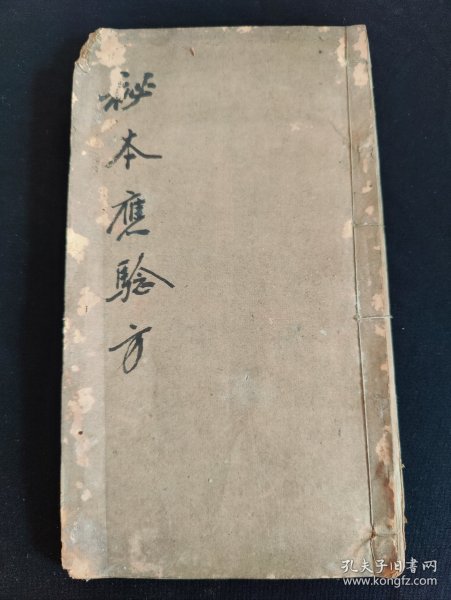 秘本應驗方
孔夫子旧书网
www.kongfz.com